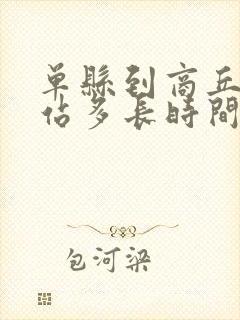 单縣到商丘
佔多長時間
包河梁